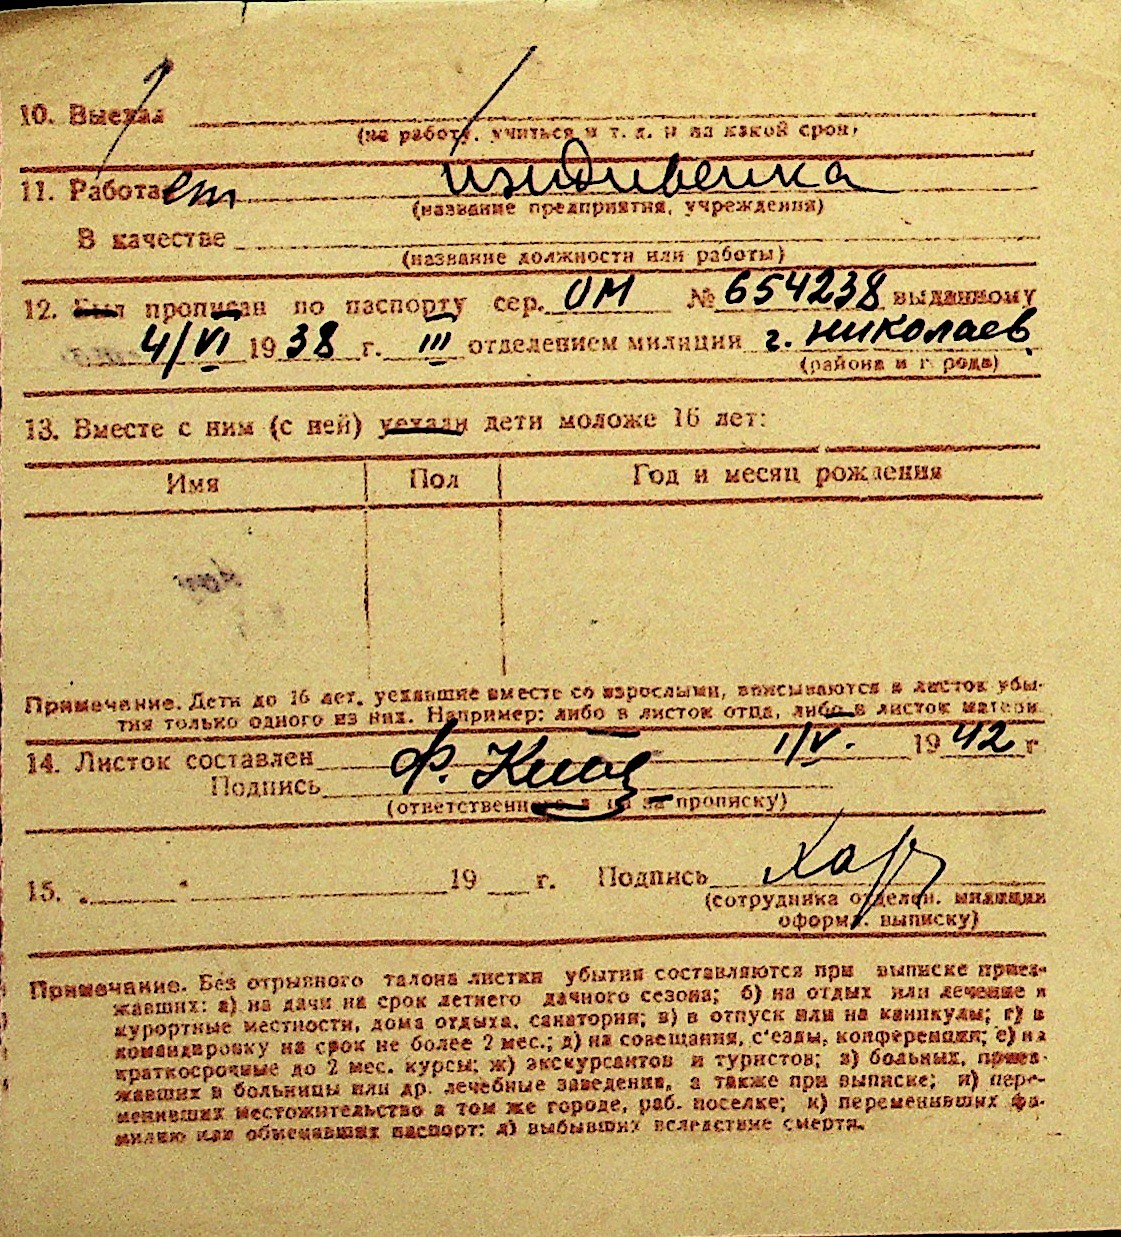 10. Выехал
(на работу, учиться и т. д. и на какой срок)
11. Работает иждивенка
(название предприятия, учреждения)
В качестве
(название должности или работы)
12. Был прописан по паспорту сер. ОМ № 654238 выданному
4/VI 1938 г. III отделением милиции г. Николаев
(района и города)
13. Вместе с ним (с ней) уехали дети моложе 16 лет:
Имя Пол Год и месяц рождения
Примечание. Дети до 16 лет, уехавшие вместе со взрослыми, вписываются в листок убы-
тия только одного из них. Например: либо в листок отца, либо в листок матери.
14. Листок составлен 1/V. 1942 г
Подпись Ф.
(ответственного за прописку)
15. 19 г. Подпись
(сотрудника отделен. милиции
оформ. выписку)
Примечание. Без отрывного талона листки убытия составляются при выписке приез-
жавших: а) на дачи на срок летнего дачного сезона; б) на отдых или лечение в
курортные местности, дома отдыха, санатории; в) в отпуск или на каникулы; г) в
командировку на срок не более 2 мес.; д) на совещания, с'езды, конференции; е) на
краткосрочные до 2 мес. курсы; ж) экскурсантов и туристов; з) больных, приез-
жавших в больницы или др. лечебные заведения, а также при выписке; и) пере-
менивших местожительство в том же городе, раб. поселке; к) переменивших фа-
милию или обменявших паспорт; л) выбывших вследствие смерти.